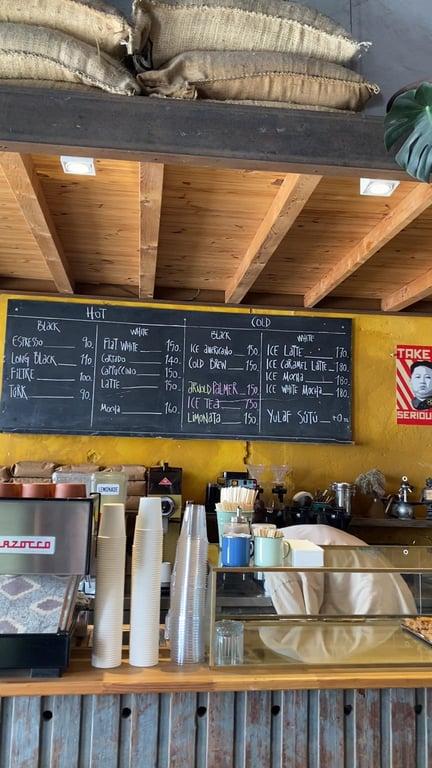 HOT
BLACK
ESPRESSO 90.
LONG BLACK 110
FILTRE 100.
TÜRK 90.
WHITE
FLAT WHITE 150.
CORTADO 140.
CAPPUCCINO 150.
LATTE 150.
MOCHA 160.
COLD
BLACK
ICE AMERICANO 150.
COLD BREW 150.
ARNOLD PALMER 150
ICE TEA 150
LIMONATA 150
WHITE
ICE LATTE 170.
ICE CARAMEL LATTE 180.
ICE MOCHA 180.
ICE WHITE MOCHA 180.
YULAF SÜTÜ +0 m
TAKE
SERIOUS
LEMONADE